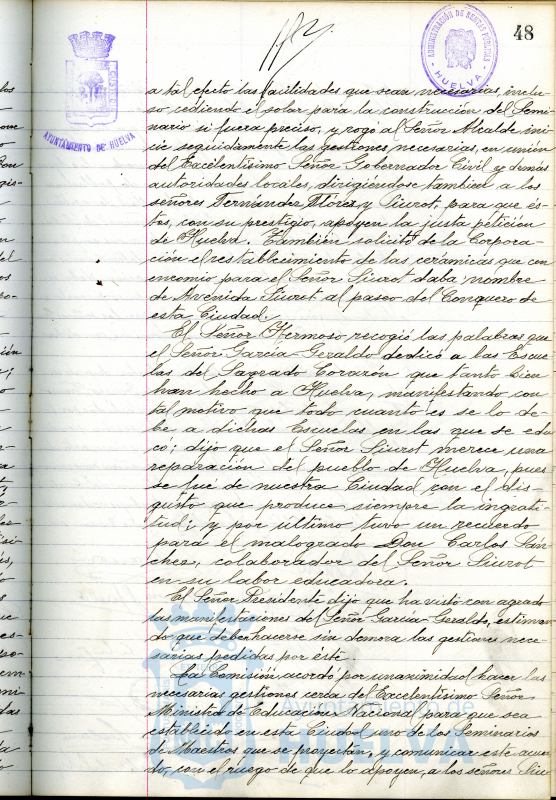 48
ADMINISTRACIÓN DE RENTAS PÚBLICAS
HUELVA
AYUNTAMIENTO DE HUELVA
a tal efecto las facilidades que sean necesarias, inclu-
so cediendo el solar para la construcción del Semi-
nario si fuera preciso, y rogo al Señor Alcalde ini-
cie seguidamente las gestiones necesarias, en unión
del Excelentísimo Señor Gobernador Civil y demás
autoridades locales, dirigiéndose tambien a los
señores Fernández Flórez y Siurot, para que és-
tos, con su prestigio, apoyen la justa petición
de Huelva. También solicitó de la Corpora-
ción el restablecimiento de las cerámicas que con
encomio para el Señor Siurot daba nombre
de Avenida Siurot al paseo del Conquero de
esta Ciudad.
El Señor Hermoso, recogió las palabras que
el Señor García-Geraldo dedicó a las Escue-
las del Sagrado Corazón que tanto bien
han hecho a Huelva, manifestando con
tal motivo que todo cuanto es se lo de-
be a dichas Escuelas en las que se edu-
có; dijo que el Señor Siurot merece una
reparación del pueblo de Huelva, pues
se fué de nuestra Ciudad con el dis-
gusto que produce siempre la ingrati-
tud; y por último tuvo un recuerdo
para el malogrado Don Carlos Sán-
chez, colaborador del Señor Siurot
en su labor educadora.
El Señor Presidente dijo que ha visto con agrado
las manifestaciones del Señor García-Geraldo, estiman-
do que deben hacerse sin demora las gestiones nece-
sarias pedidas por éste.
La Comisión acordó por unanimidad hacer las
necesarias gestiones cerca del Excelentísimo Señor
Ministro de Educación Nacional para que sea
establecido en esta Ciudad uno de los Seminarios
de Maestros que se proyectan, y comunicar este acuer-
do, con el ruego de que lo apoyen, a los señores Siu-
Ayuntamiento de
HUELVA